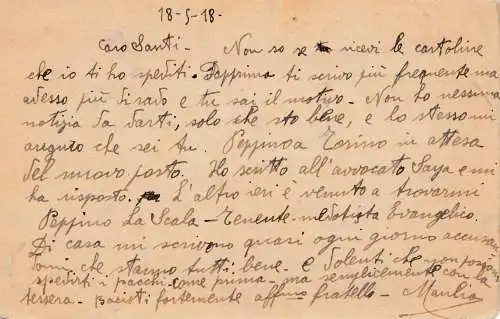 18-5-18-
Caro Santi - Non so se ricevi le cartoline
che io ti ho spediti. Dapprima ti scrivo più frequente ma
adesso più di rado e tu sai il motivo - Non ho nessuna
notizia da darti, solo che sto bene, e lo stesso mi
auguro che sei tu. Peppino a Torino in attesa
del nuovo posto. Ho scritto all'avvocato Saya e mi
ha risposto. L'altro ieri è venuto a trovarmi
Peppino La Scala - Tenente - Evangelico.
Di casa mi scrivono quasi ogni giorno
che stanno tutti bene - e dolenti che non
spedirti i pacchi come prima - ma semplicemente con la
tessera - fortemente aff fratello - Manlio